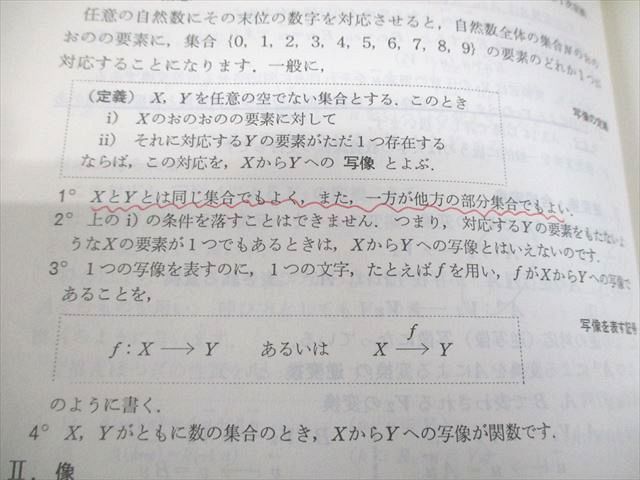 任意の自然数にその末位の数字を対応させると，自然数全体の集合Nのお
おのの要素に，集合 {0, 1, 2, 3, 4, 5, 6, 7, 8, 9} の要素のどれか1つが
対応することになります．一般に，
（定義） X，Yを任意の空でない集合とする．このとき
写像の定義
i） Xのおのおのの要素に対して
ii） それに対応するYの要素がただ1つ存在する
ならば，この対応を，XからYへの 写像 とよぶ．
1° XとYとは同じ集合でもよく，また，一方が他方の部分集合でもよい．
2° 上の i）の条件を落すことはできません．つまり，対応するYの要素をもたないよ
うなXの要素が1つでもあるときは，XからYへの写像とはいえないのです．
3° 1つの写像を表すのに，1つの文字，たとえばfを用い，fがXからYへの写像で
あることを，
写像を表す記号
f : X ⟶ Y あるいは X f⟶ Y
のように書く．
4° X，Yがともに数の集合のとき，XからYへの写像が関数です．
II．像